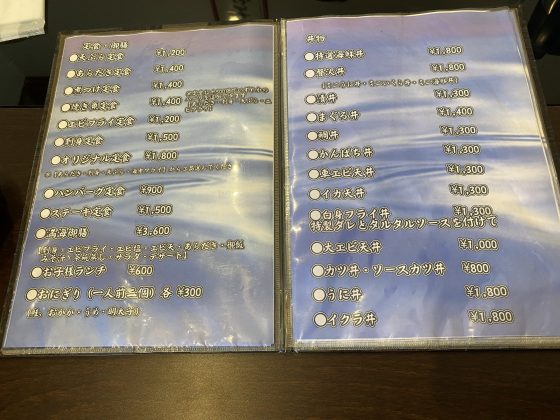 定食・御膳
●天ぷら定食 ¥1,200
●あらだき定食 ¥1,400
●煮つけ定食 ¥1,400
●焼き魚定食 ¥1,400
●エビフライ定食 ¥1,200
●刺身定食 ¥1,500
●オリジナル定食 ¥1,800
●ハンバーグ定食 ¥900
●ステーキ定食 ¥1,500
●満海御膳 ¥3,600
みそ汁・茶わん蒸し・サラダ・デザート】
●お子様ランチ ¥600
●おにぎり（一人前二個）各 ¥300
（鮭、おかか・うめ・明太子）
丼物
●特選海鮮丼 ¥1,800
●贅沢丼 ¥1,800
●漬丼 ¥1,300
●まぐろ丼 ¥1,400
●鯛丼 ¥1,300
●かんぱち丼 ¥1,300
●車エビ天丼 ¥1,300
●イカ天丼 ¥1,300
●白身フライ丼 ¥1,300
特製ダレとタルタルソースを付けて
●大エビ天丼 ¥1,000
●カツ丼・ソースカツ丼 ¥800
●うに丼 ¥1,800
●イクラ丼 ¥1,800